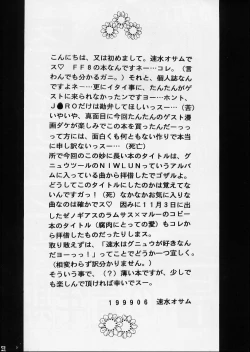 こんにちは、又は初めまして。速水オサムで
す♡　ＦＦ８の本なんですネー…コレ。（言
わんでも分かるガニ。）それと、個人誌なんで
すよネ…ー…更にイタイ事に、たんたんがゲス
トに来られなかったンですヨーッ…ホント、
Ｊ●ＲＯだけは勘弁してほしいッス…（苦）
いやいや、真面目に今回たんたんのゲスト漫
画ダケが楽しみでこの本を買ったんだーっっ
って方には、面白くも何ともない作りで本当
にお寒いッス…。（死亡）
所で今回のこの妙に長い本のタイトルは、グ
ニュウツールのＮＩＷＬＵＮってアルバム
に入っている曲から拝借したでゴザルよ。
どうしてこのタイトルにしたのかは覚えてな
いんですガっ！（死）なかなかお気に入りな
曲なのは確かでス♡　因みに１１月３日に出
したゼノギアスのラムサス×マルーのコピー
本のタイトル（腐肉にとっての愛）もコレか
ら拝借したものだったりしまス。
取り敢えずは、「速水はグニュウが好きなん
だヨーっっ！」ってことでどうか一つ宜しく。
（相変わらず訳分かりません。）
そういう事で、（？）薄い本ですが、少しで
も楽しんで頂ければ幸いでス…。
１９９９０６　速水オサム